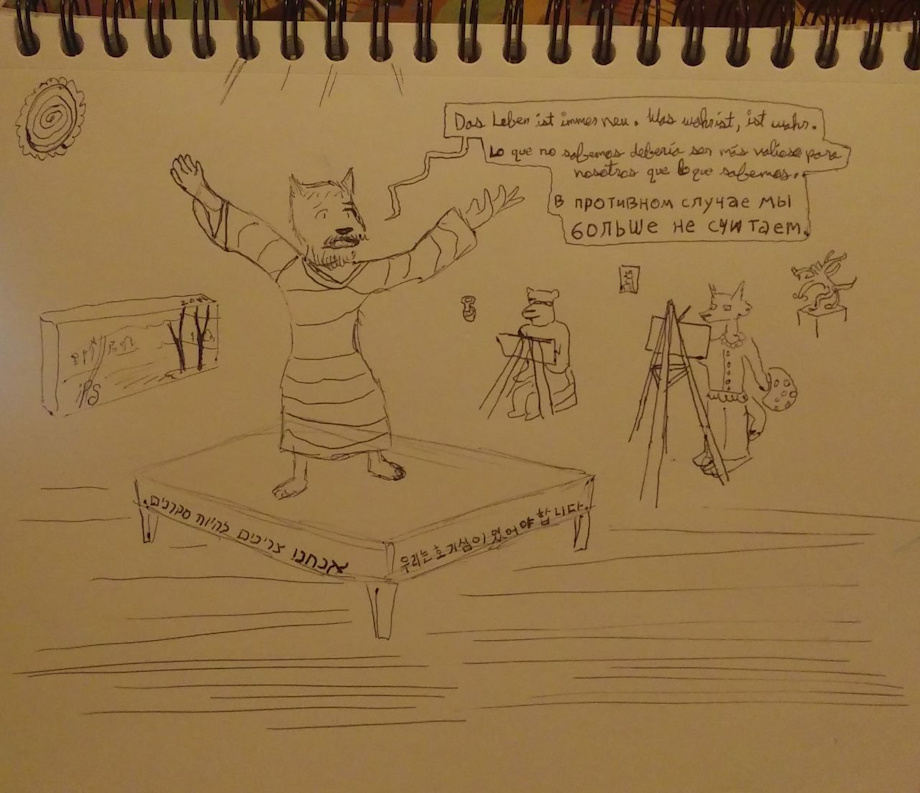 Das Leben ist immer neu. Was wahr ist, ist wahr.
Lo que no sabemos debería ser más valioso para
nosotros que lo que sabemos.
В противном случае мы
больше не считаем.
אנחנו צריכים להיות סקרנים.
우리는 호기심이 있어야 합니다.